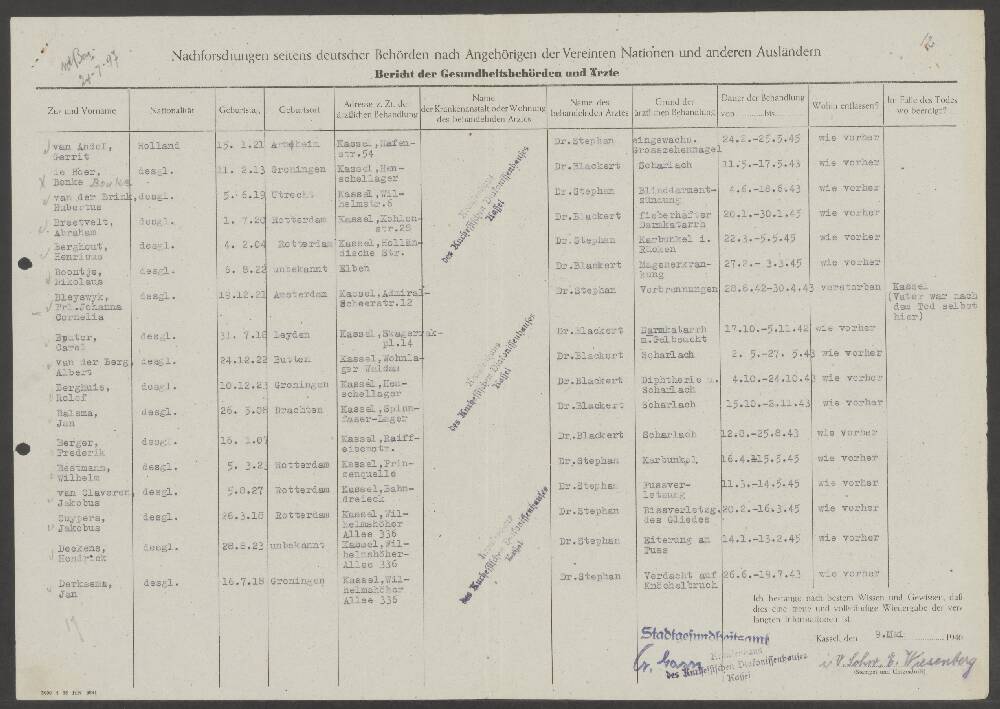 12
24-7-97
Nachforschungen seitens deutscher Behörden nach Angehörigen der Vereinten Nationen und anderen Ausländern
Bericht der Gesundheitsbehörden und Ärzte
Zu- und Vorname Nationalität Geburtstag Geburtsort Adresse z. Zt. der ärztlichen Behandlung Name der Krankenanstalt oder Wohnung des behandelnden Arztes Name des behandelnden Arztes Grund der ärztlichen Behandlung Dauer der Behandlung von bis Wohin entlassen? Im Falle des Todes wo beerdigt?
van Andel, Holland 15. 1.21 Kassel,Hafen- Dr.Stephan eingewachs. 24.2.-25.5.45 wie vorher
Gerrit str.54 Grosszehennagel
de Boer, desgl. 11. 2.13 Groningen Kassel,Hen- Dr.Blackert Scharlach 11.5.-17.5.43 wie vorher
Bonke Bouke schellager
van der Brink, desgl. 5. 6.19 Utrecht Kassel,Wil- Dr.Stephan Blinddarment- 4.6.-18.6.43 wie vorher
Hubertus helmstr.6 zündung
Breetvelt, desgl. 1. 7.20 Rotterdam Kassel,Kohlen- Dr.Blackert fieberhafter 20.1.-30.1.45 wie vorher
Abraham str.25 Darmkatarrh
Berghout, desgl. 4. 2.04 Rotterdam Kassel,Hollän- Dr.Stephan Karbunkel i. 22.3.-5.5.45 wie vorher
Henricus dische Str. Rücken
Boontje, desgl. 6. 8.22 unbekannt Elben Dr.Blackert Magenerkran- 27.2.- 3.3.45 wie vorher
Nikolaus kung
Bleyswyk, desgl. 19.12.21 Amsterdam Kassel,Admiral- Dr.Stephan Verbrennungen 28.6.42-30.4.43 verstorben Kassel
Frl.Johanna Scheerstr.12 (Vater war nach
Cornelia dem Tod selbst
hier)
desgl. 31. 7.18 Leyden Kassel,Skagerrak- Dr.Blackert Darmkatarrh 17.10.-5.11.42 wie vorher
Carel pl.14 u.Gelbsucht
van der Berg, desgl. 24.12.22 Kassel,Wohnla- Dr.Blackert Scharlach 2. 5.-27. 5.43 wie vorher
Albert ger Waldau
Berghuis, desgl. 10.12.23 Groningen Kassel,Hen- Dr.Blackert Diphtherie u. 4.10.-24.10.43 wie vorher
Rolof schellager Scharlach
Balsma, desgl. 26. 5.08 Drachten Kassel,Spinn- Dr.Blackert Scharlach 15.10.-2.11.43 wie vorher
Jan faser-Lager
Berger, desgl. 16. 1.07 Kassel,Raiff- Dr.Blackert Scharlach 12.8.-25.8.43 wie vorher
Frederik eisenstr.
Bestmann, desgl. 5. 3.23 Rotterdam Kassel,Prin- Dr.Stephan Karbunkel 16.4.-15.5.45 wie vorher
Wilhelm zenquelle
van Claveren, desgl. 5.8.27 Rotterdam Kassel,Bahn- Dr.Stephan Fussver- 11.3.-14.5.45 wie vorher
Jakobus dreieck letzung
Cuypers, desgl. 26.3.18 Rotterdam Kassel,Wil- Dr.Stephan Bissverletzg. 20.2.-16.3.45 wie vorher
Jakobus helmshöher des Gliedes
Allee 336
Deekens, desgl. 28.8.23 unbekannt Kassel,Wil- Dr.Stephan Eiterung am 14.1.-13.2.45 wie vorher
Hendrick helmshöher- Fuss
Allee 336
Derksema, desgl. 16.7.18 Groningen Kassel,Wil- Dr.Stephan Verdacht auf 26.6.-19.7.43 wie vorher
Jan helmshöher Knöchelbruch
Allee 336
des Kurhessischen Diakonissenhauses
Kassel
des Kurhessischen Diakonissenhauses
Kassel
des Kurhessischen Diakonissenhauses
Kassel
Ich bestätige nach bestem Wissen und Gewissen, daß
dies eine treue und vollständige Wiedergabe der ver-
langten Informationen ist.
Stadtgesundheitsamt
Kassel, den 9.Mai 1946
Krankenhaus
des Kurhessischen Diakonissenhauses
Kassel
i.V. E. Wiesenberg
(Stempel und Unterschrift)
17